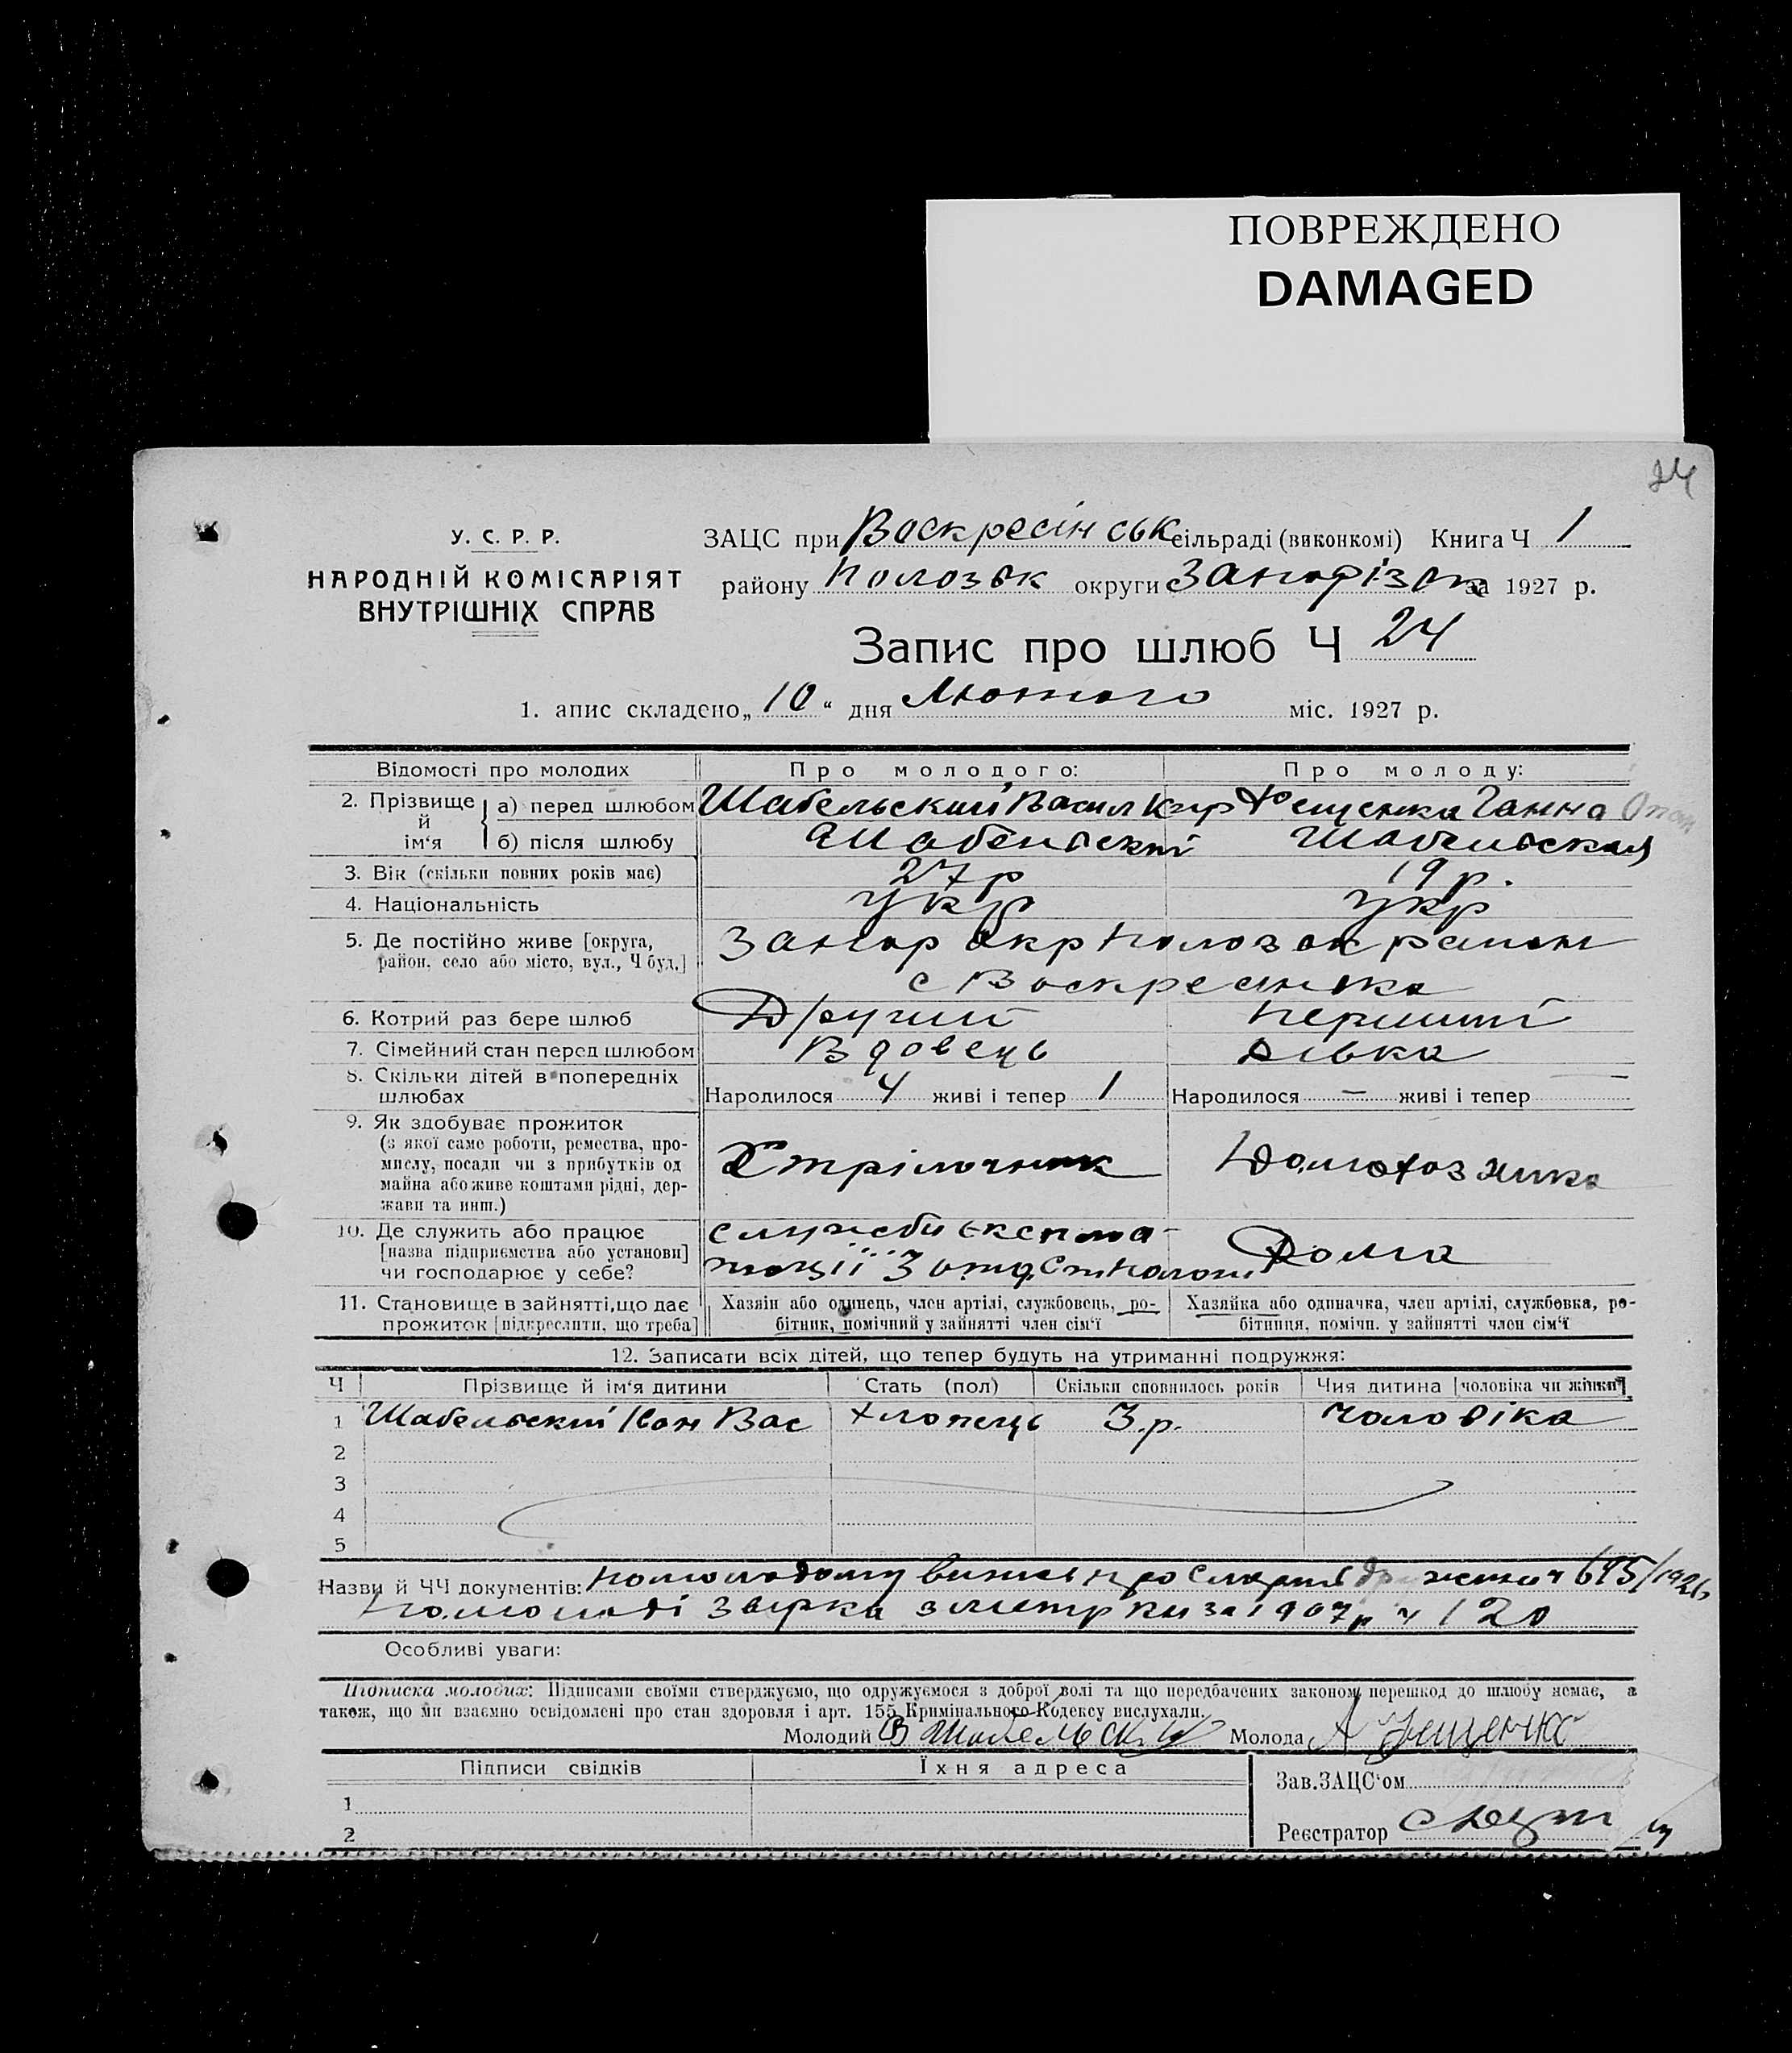 ПОВРЕЖДЕНО
DAMAGED
24
У. С. Р. Р.
НАРОДНІЙ КОМІСАРІЯТ
ВНУТРІШНІХ СПРАВ
ЗАЦС при Воскресінськ сільраді (виконкомі) Книга Ч 1
району Полозьк округи Запоріз за 1927 р.
Запис про шлюб Ч 24
1. апис складено „10“ дня Лютого міс. 1927 р.
Відомості про молодих Про молодого: Про молоду:
2. Прізвище й ім‘я
а) перед шлюбом Шабельский Васил Кир Фещенко Ганна
б) після шлюбу Шабельскі Шабельская
3. Вік (скільки повних років має) 27 р 19 р.
4. Національність Укр Укр
5. Де постійно живе [округа, район, село або місто, вул., Ч буд.] Запор окр Полозьк район
с Воскресінка
6. Котрий раз бере шлюб Другий Перший
7. Сімейний стан перед шлюбом Вдовець Дівка
8. Скільки дітей в попередніх шлюбах Народилося 4 живі і тепер 1 Народилося — живі і тепер —
9. Як здобуває прожиток
(з якої саме роботи, ремества, про-
мислу, посади чи з прибутків од
майна або живе коштами рідні, дер-
жави та инш.)
Стрілочник Домохозяика
10. Де служить або працює
[назва підприємства або установи]
чи господарює у себе?
службы експлоа-
тації 3 отд. Ст Пологи Дома
11. Становище в зайнятті, що дає
прожиток [підкреслити, що треба]
Хазяін або одинець, член артілі, службовець, ро-
бітник, помічний у зайнятті член сім‘ї
Хазяйка або одиначка, член артілі, службовка, ро-
бітниця, помічн. у зайнятті член сім‘ї
12. Записати всіх дітей, що тепер будуть на утриманні подружжя:
Ч Прізвище й ім‘я дитини Стать (пол) Скільки сповнилось років Чия дитина [чоловіка чи жінки]
1 Шабельский Іван Вас Хлопець 3.р. чоловіка
2
3
4
5
Назви й ЧЧ документів: По молодому про смерть ч 695/1926
По молоді звірка з метр кн за 1907 р ч 120
Особливі уваги:
Підписка молодих: Підписами своїми стверджуємо, що одружуємося з доброї волі та що передбачених законом перешкод до шлюбу немає, а
також, що ми взаємно освідомлені про стан здоровля і арт. 155 Кримінального Кодексу вислухали.
Молодий В Шабельский Молода А Фещенко
Підписи свідків Їхня адреса
1
2
Зав. ЗАЦС‘ом
Реєстратор